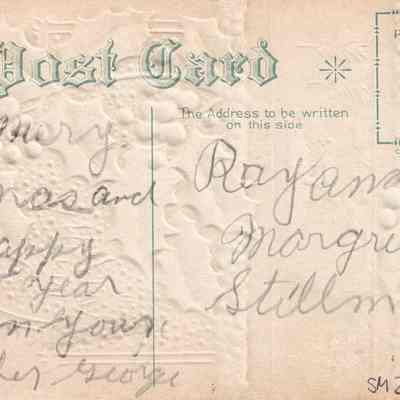 Post Card
The Address to be written
on this side
mery
mas and
appy
year
n your
her George
Ray and
Margri
Stillm
SM